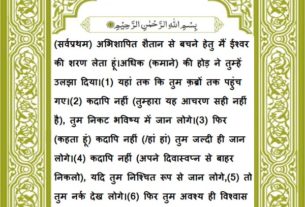 بِسْمِ اللهِ الرَّحْمٰنِ الرَّحِيْمِ
(सर्वप्रथम) अभिशापित शैतान से बचने हेतु मैं ईश्वर
की शरण लेता हूं।अधिक (कमाने) की होड़ ने तुम्हें
उलझा दिया।(1) यहां तक कि तुम क़ब्रों तक पहुंच
गए।(2) कदापि नहीं (तुम्हारा यह आचरण सही नहीं
है), तुम निकट भविष्य में जान लोगे।(3) फिर
(कहता हूं) कदापि नहीं (/हां हां) तुम जल्दी ही जान
लोगे।(4) कदापि नहीं (अपने दिवास्वप्न से बाहर
निकलो), यदि तुम निश्चित रूप से जान लोगे,(5) तो
तुम नर्क देख लोगे।(6) फिर तुम अवश्य ही विश्वास